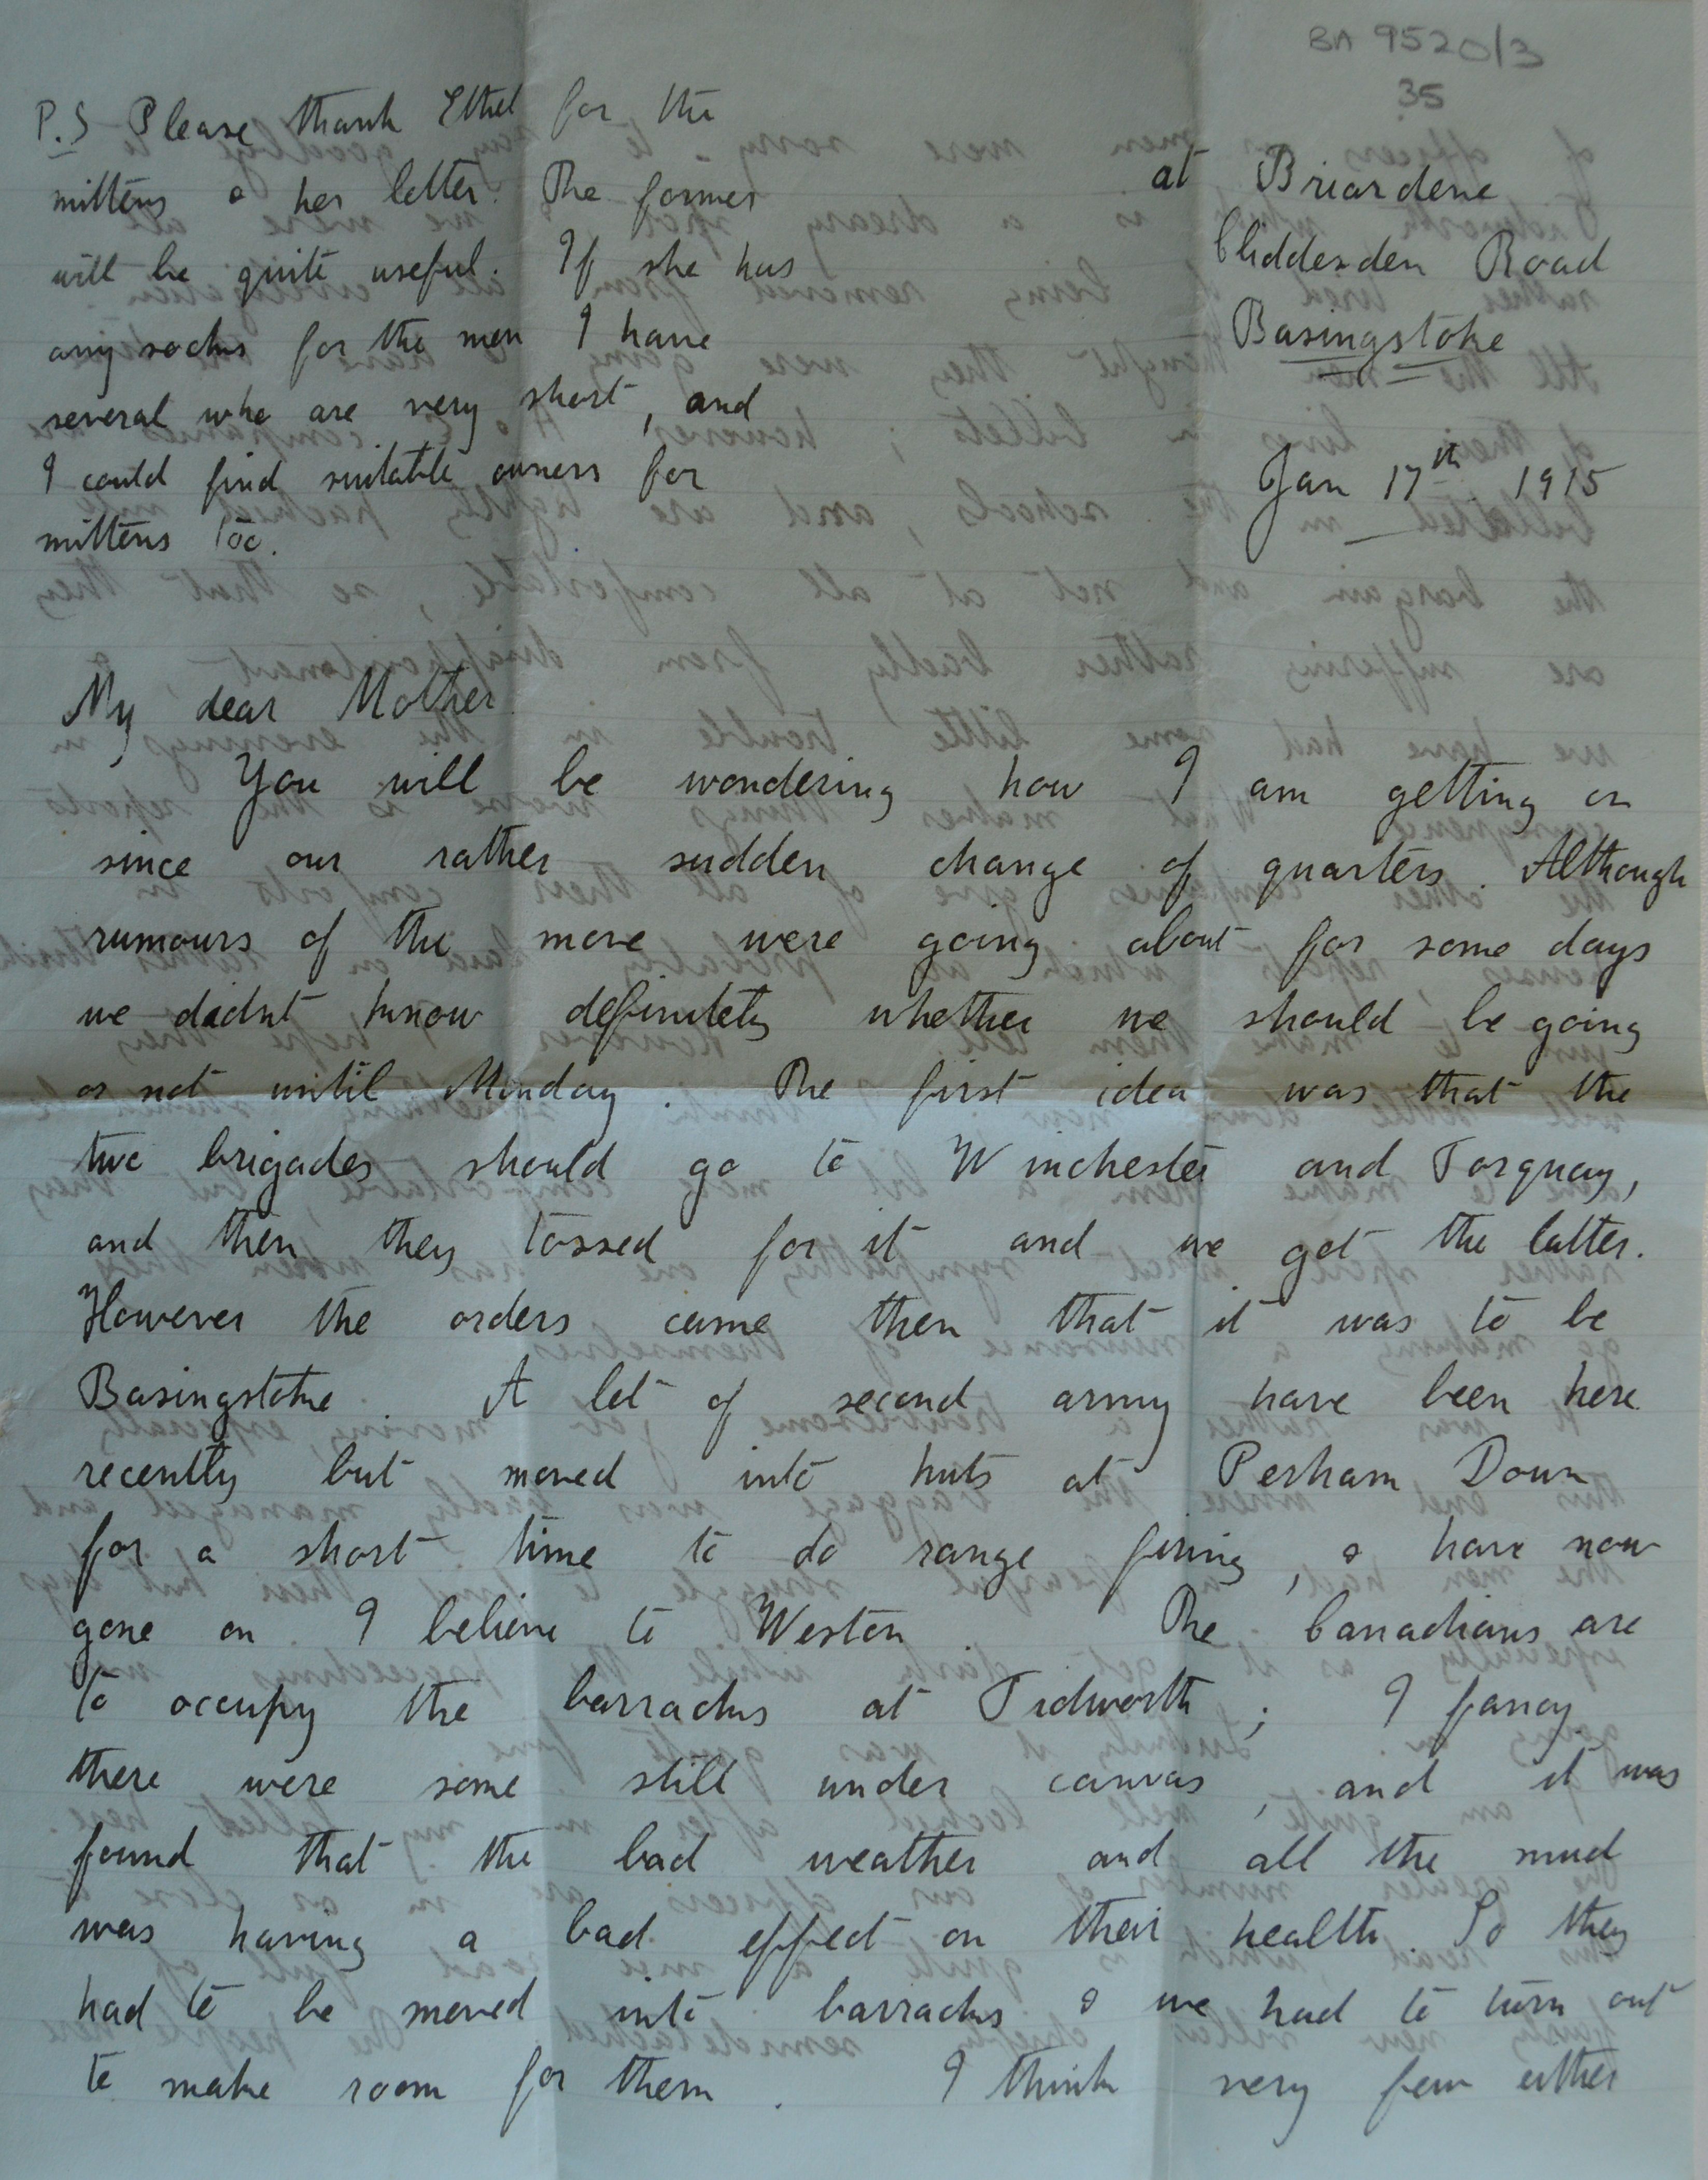 BA 9520/3
35
P.S Please thank Ethel for the
mittens & her letter. The former
will be quite useful. If she has
any socks for the men I have
several who are very short, and
I could find suitable owners for
mittens too.
at Briardene
Cliddesden Road
Basingstoke
Jan 17th. 1915
My dear Mother
You will be wondering how I am getting on
since our rather sudden change of quarters. Although
rumours of the move were going about for some days
we didnt know definitely whether we should be going
or not until Monday. The first idea was that the
two brigades should go to Winchester and Torquay,
and then they tossed for it and we got the latter.
However the orders came then that it was to be
Basingstoke. A lot of second army have been here
recently but moved into huts at Perham Down
for a short time to do range firing, & have now
gone on I believe to Weston. The Canadians are
to occupy the barracks at Tidworth; I fancy
there were some still under canvas, and it was
found that the bad weather and all the mud
was having a bad effect on their health. So they
had to be moved into barracks & we had to turn out
to make room for them. I think very few either